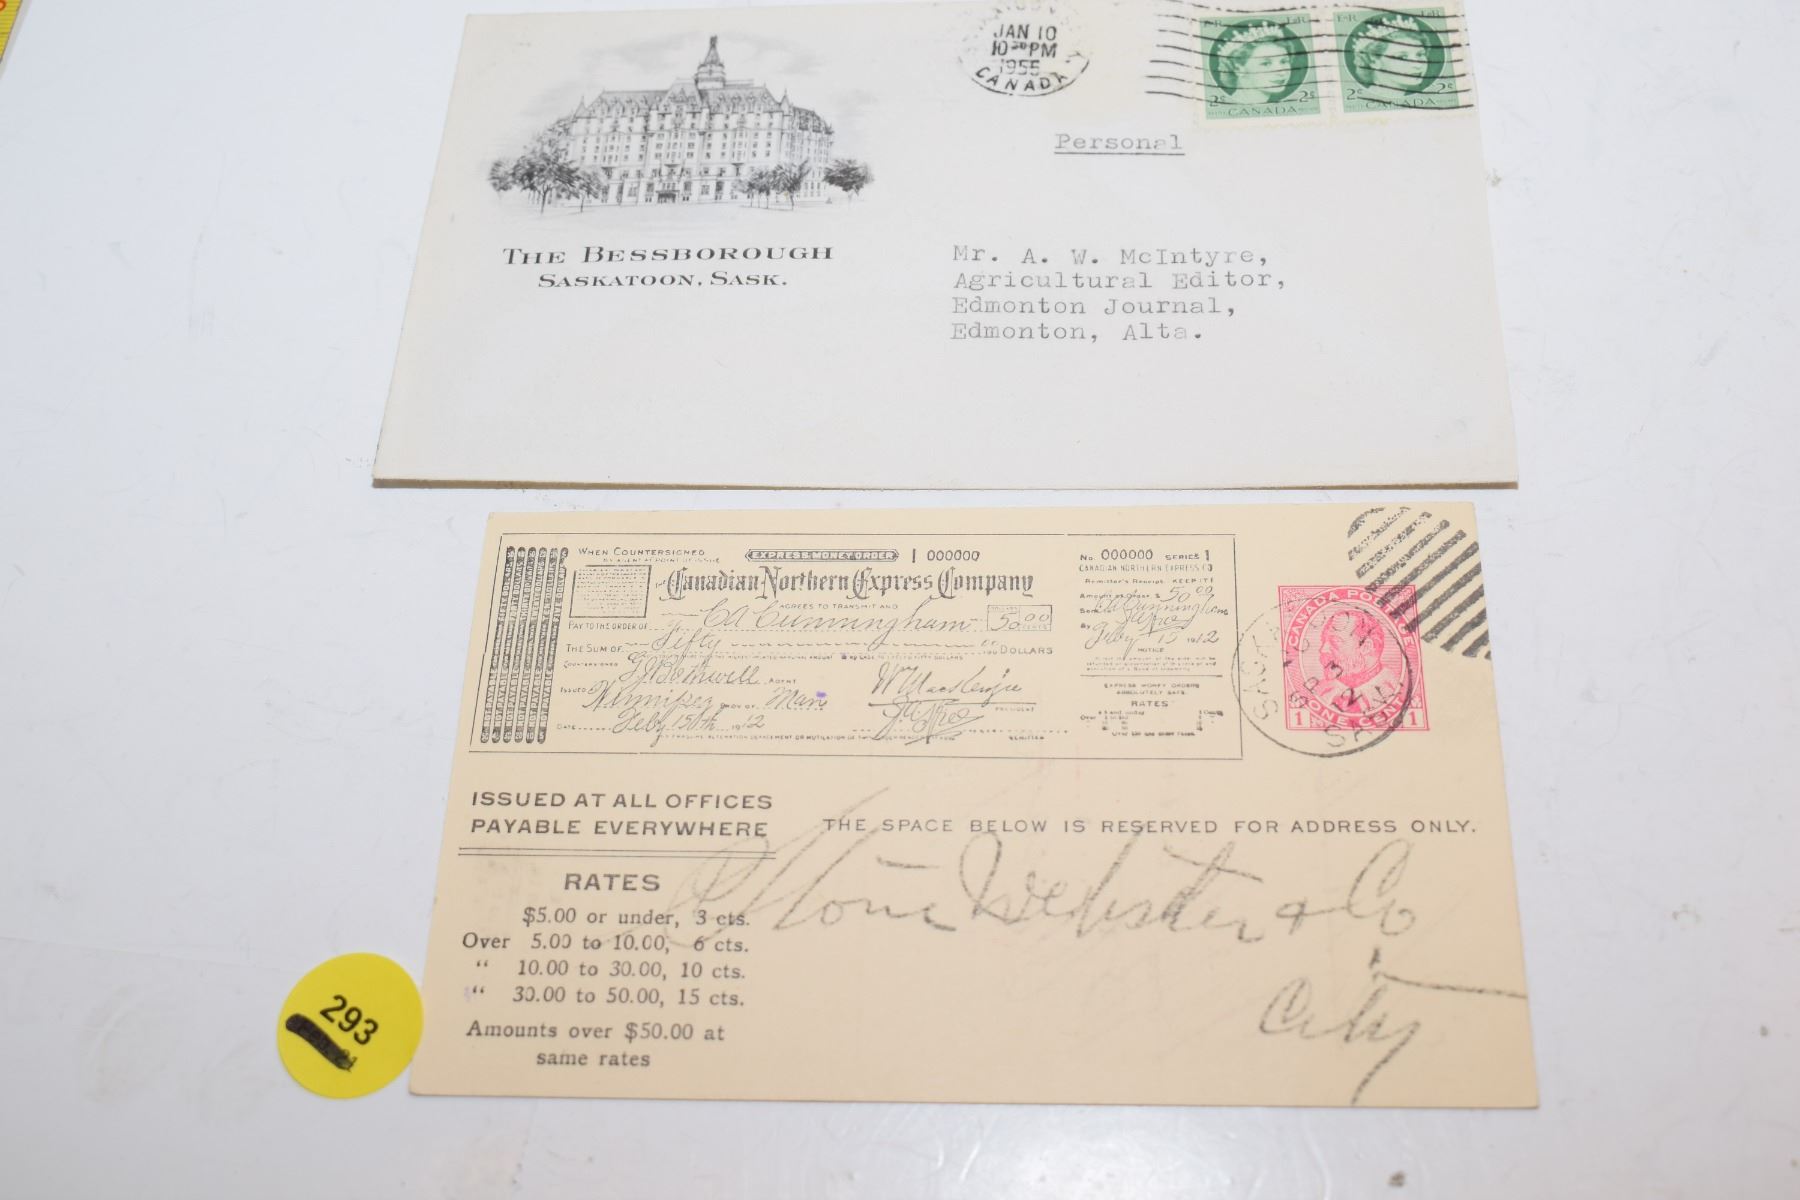 JAN 10
10 30 PM
1955
CANADA
E R E R
2c CANADA 2c
E R E R
2c CANADA 2c
Personal
THE BESSBOROUGH
SASKATOON, SASK.
Mr. A. W. McIntyre,
Agricultural Editor,
Edmonton Journal,
Edmonton, Alta.
WHEN COUNTERSIGNED
BY AGENT AT POINT OF ISSUE
EXPRESS MONEY ORDER
1 000000
Canadian Northern Express Company
AGREES TO TRANSMIT AND
PAY TO THE ORDER OF CA Cunningham $50.00
THE SUM OF Fifty 00 DOLLARS
COUNTERSIGNED AGENT
ISSUED Winnipeg PROV OF Man
DATE Feby 15th 1912
PRESIDENT
REMITTER
No. 000000 SERIES 1
CANADIAN NORTHERN EXPRESS CO
Remitter's Receipt. KEEP IT!
Amount of Order $ 50.00
CA Cunningham
By
Feby 15 1912
NOTICE
EXPRESS MONEY ORDERS
ABSOLUTELY SAFE.
RATES
CANADA POSTAGE
1 ONE CENT 1
SP 3
12
SASK.
ISSUED AT ALL OFFICES
PAYABLE EVERYWHERE
THE SPACE BELOW IS RESERVED FOR ADDRESS ONLY.
RATES
$5.00 or under, 3 cts.
Over 5.00 to 10.00, 6 cts.
" 10.00 to 30.00, 10 cts.
" 30.00 to 50.00, 15 cts.
Amounts over $50.00 at
same rates
Stone Webster & Co
City
293